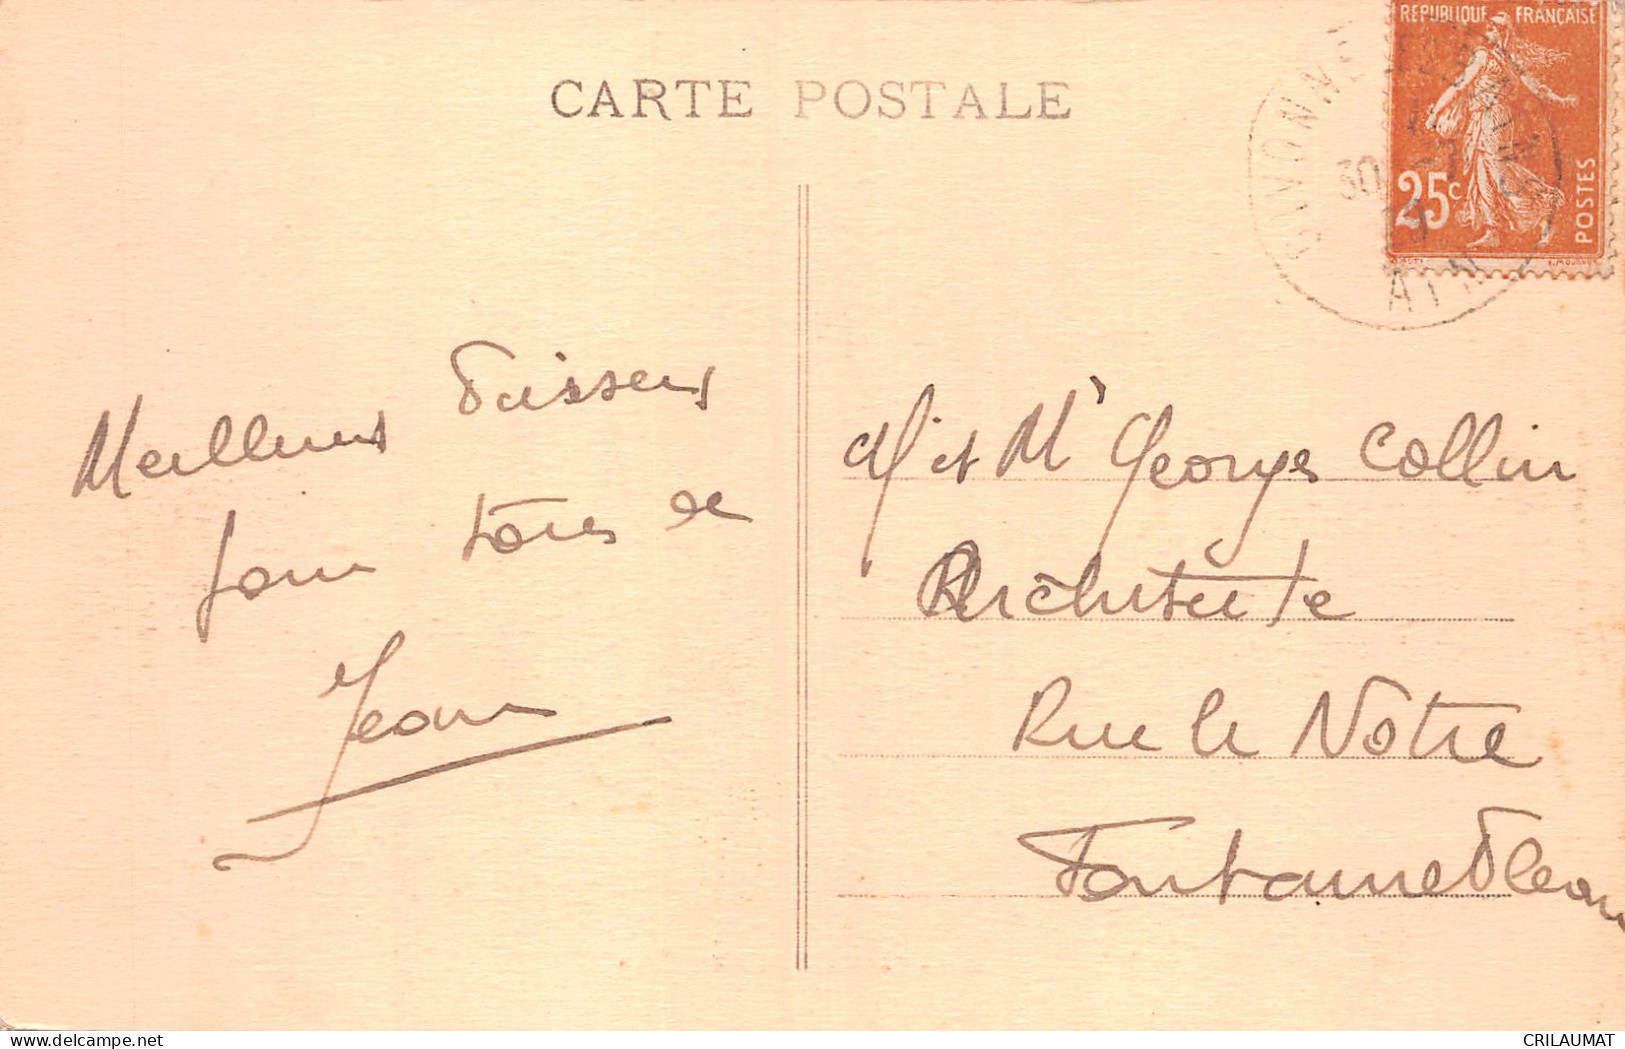 CARTE POSTALE
REPUBLIQUE FRANÇAISE
25c
POSTES
DIVONNE
30
AIN
Meilleurs Baisers
pour tous de
Jean
M. et Mme Georges Collin
Architecte
Rue le Notre
Fontainebleau
www.delcampe.net
CRILAUMAT